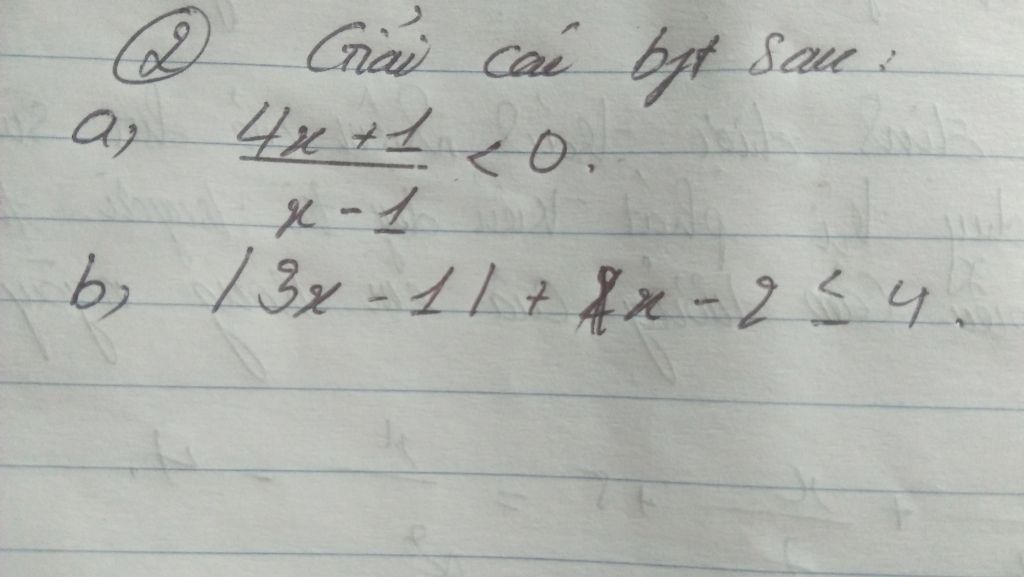 ② Giải các bpt sau:
a, 4x + 1
x - 1
< 0.
b, |3x - 1| + x - 2 ≤ 4.